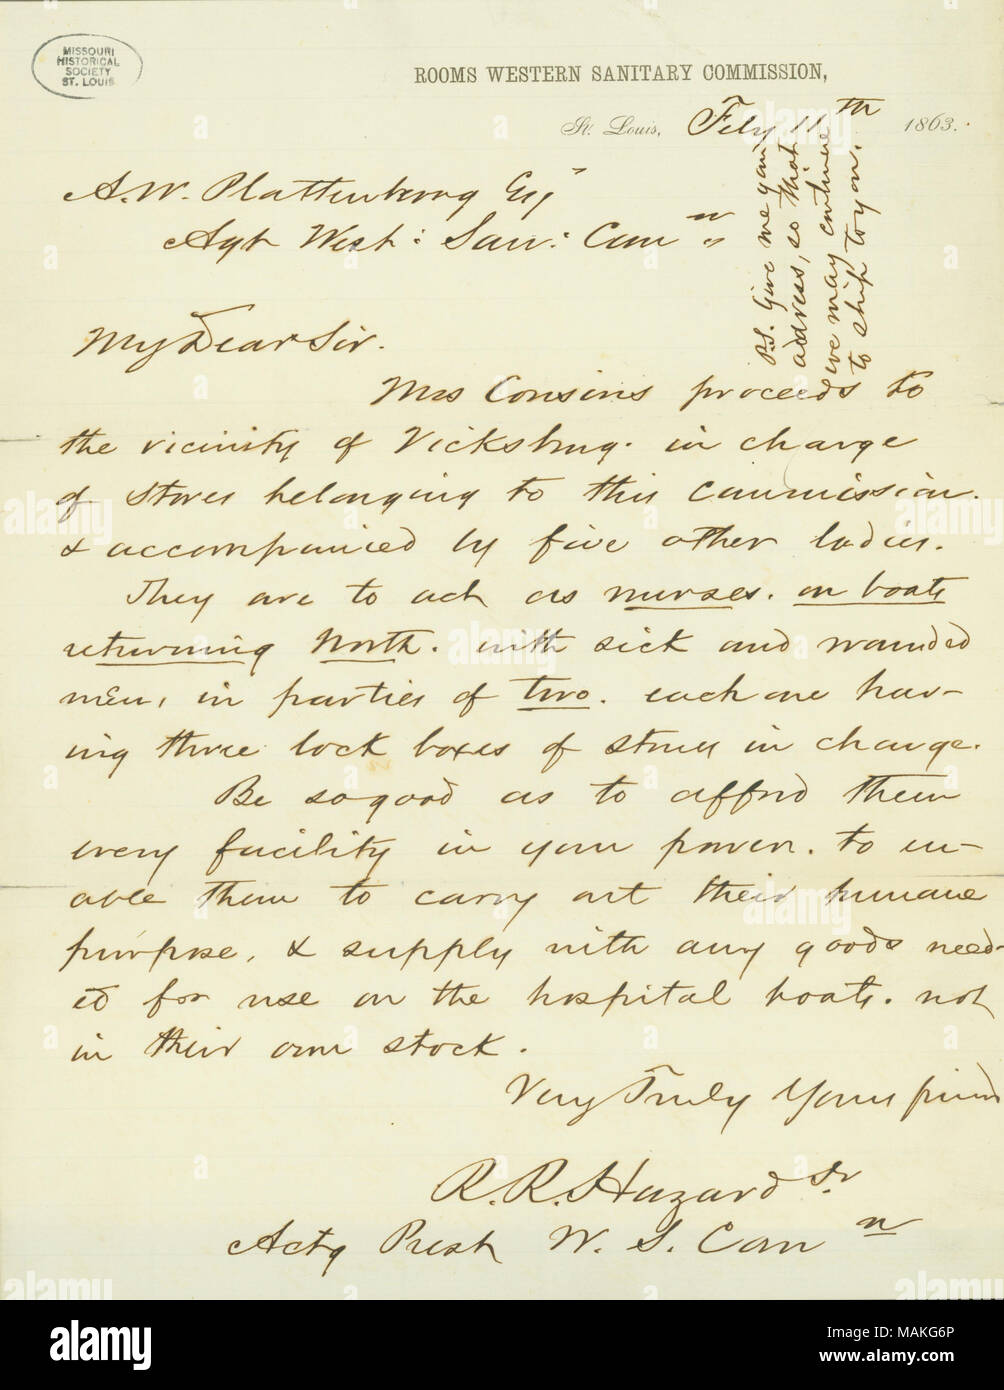 MISSOURI
HISTORICAL
SOCIETY
ST. LOUIS
ROOMS WESTERN SANITARY COMMISSION,
St. Louis, Feby 11th 1863.
A. W. Plattenburg Esq
Agt West: San: Comn
P.S. Give me your
address, so that
we may continue
to ship to you.
My Dear Sir.
Mrs Cousins proceeds to
the vicinity of Vicksburg. in charge
of stores belonging to this Commission.
& accompanied by five other ladies.
They are to act as nurses. on boats
returning North. with sick and wounded
men, in parties of two. each one hav-
ing three lock boxes of stores in charge.
Be so good as to afford them
every facility in your power. to en-
able them to carry out their humane
purpose, & supply with any goods need-
ed for use on the hospital boats. not
in their own stock.
Very Truly Yours friend
R. R. Hazard Jr
Actg Prest W. S. Comn
alamy
Image ID: MAKG6P
www.alamy.com